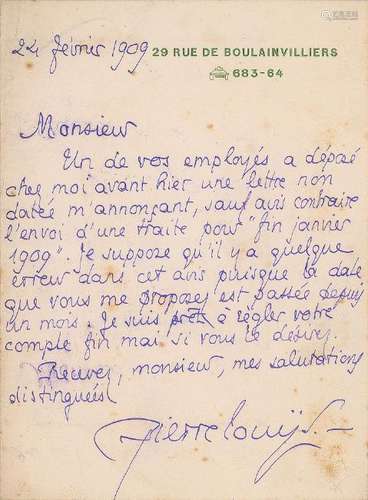 24 février 1909
29 RUE DE BOULAINVILLIERS
683-64
Monsieur
Un de vos employés a déposé
chez moi avant hier une lettre non
datée m'annonçant, sauf avis contraire
l'envoi d'une traite pour "fin janvier
1909". Je suppose qu'il y a quelque
erreur dans cet avis puisque la date
que vous me proposez est passée depuis
un mois. Je suis prêt à régler votre
compte fin mai si vous le désirez.
Recevez, monsieur, mes salutations
distinguées
Pierre Louÿs.